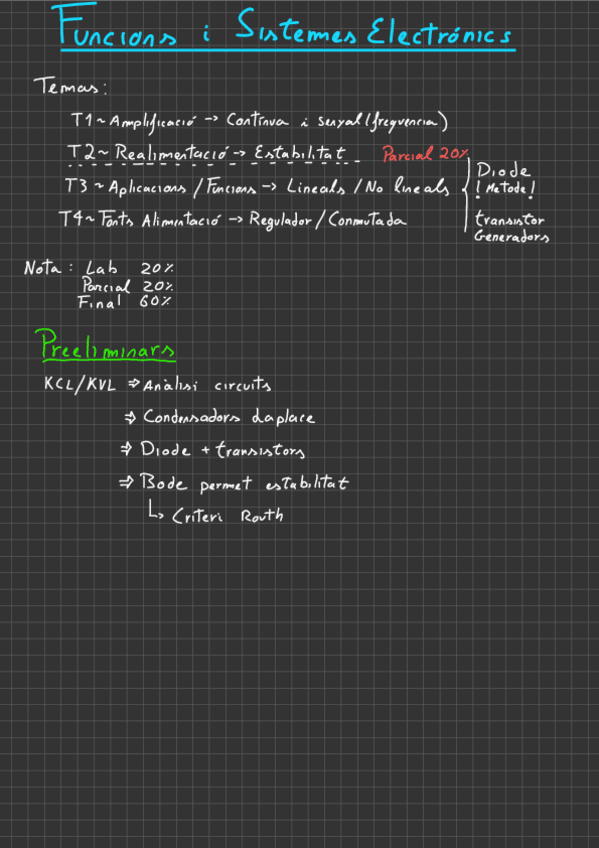 Funcions i Sistemes Electrónics
Temas:
T1 ~ Amplificació → Contínua i senyal (freqüencia)
T2 ~ Realimentació → Estabilitat Parcial 20%
T3 ~ Aplicacions / Funcions → Lineals / No lineals
T4 ~ Fonts Alimentació → Regulador / Conmutada
Diode
! Metode !
transistor
Generadors
Nota: Lab 20%
Parcial 20%
Final 60%
Preeliminars
KCL/KVL ⇒ Anàlisi circuits
⇒ Condensadors Laplace
⇒ Diode + transistors
⇒ Bode permet estabilitat
↳ Criteri Routh